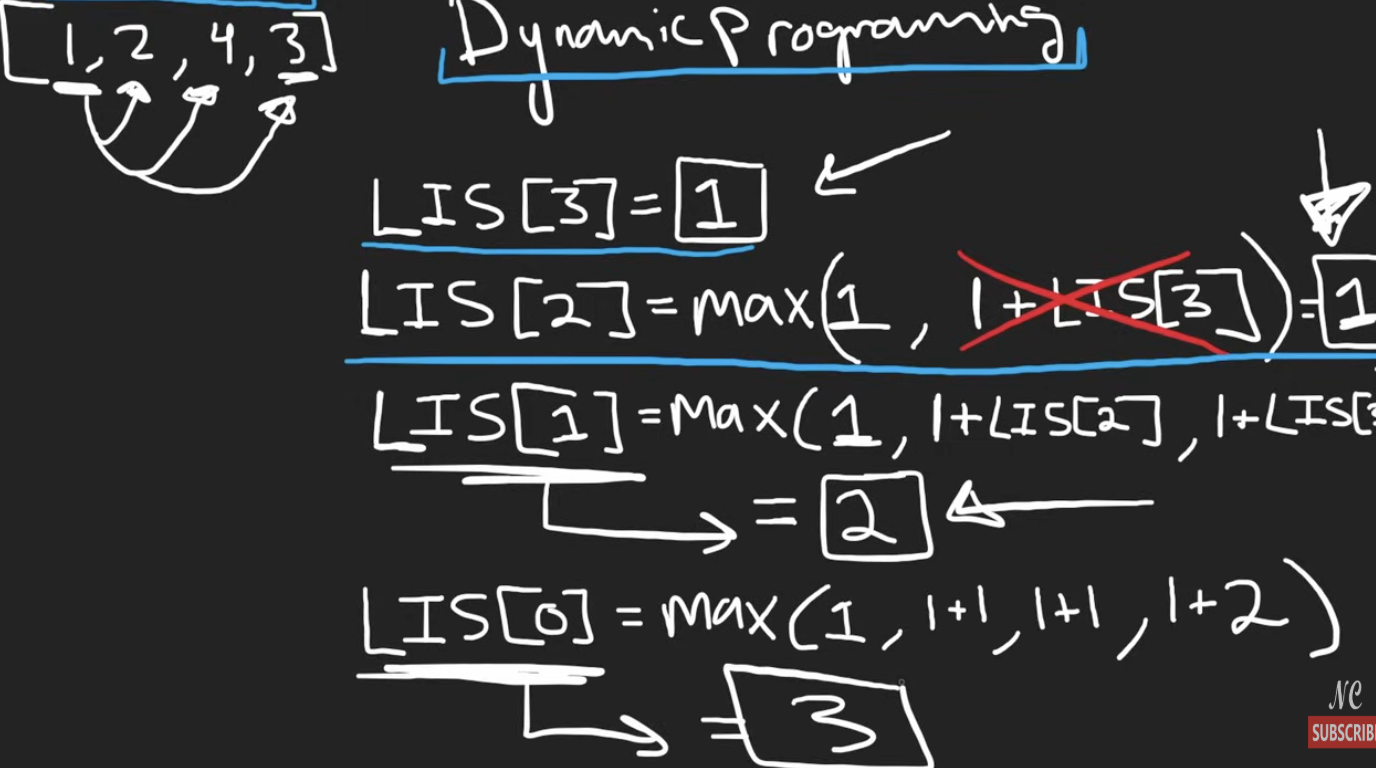 [1, 2, 4, 3]
Dynamic Programing
LIS[3] = 1
LIS[2] = max(1, 1+LIS[3]) = 1
LIS[1] = max(1, 1+LIS[2], 1+LIS[3
= 2
LIS[0] = max(1, 1+1, 1+1, 1+2)
= 3
NC
SUBSCRIBE